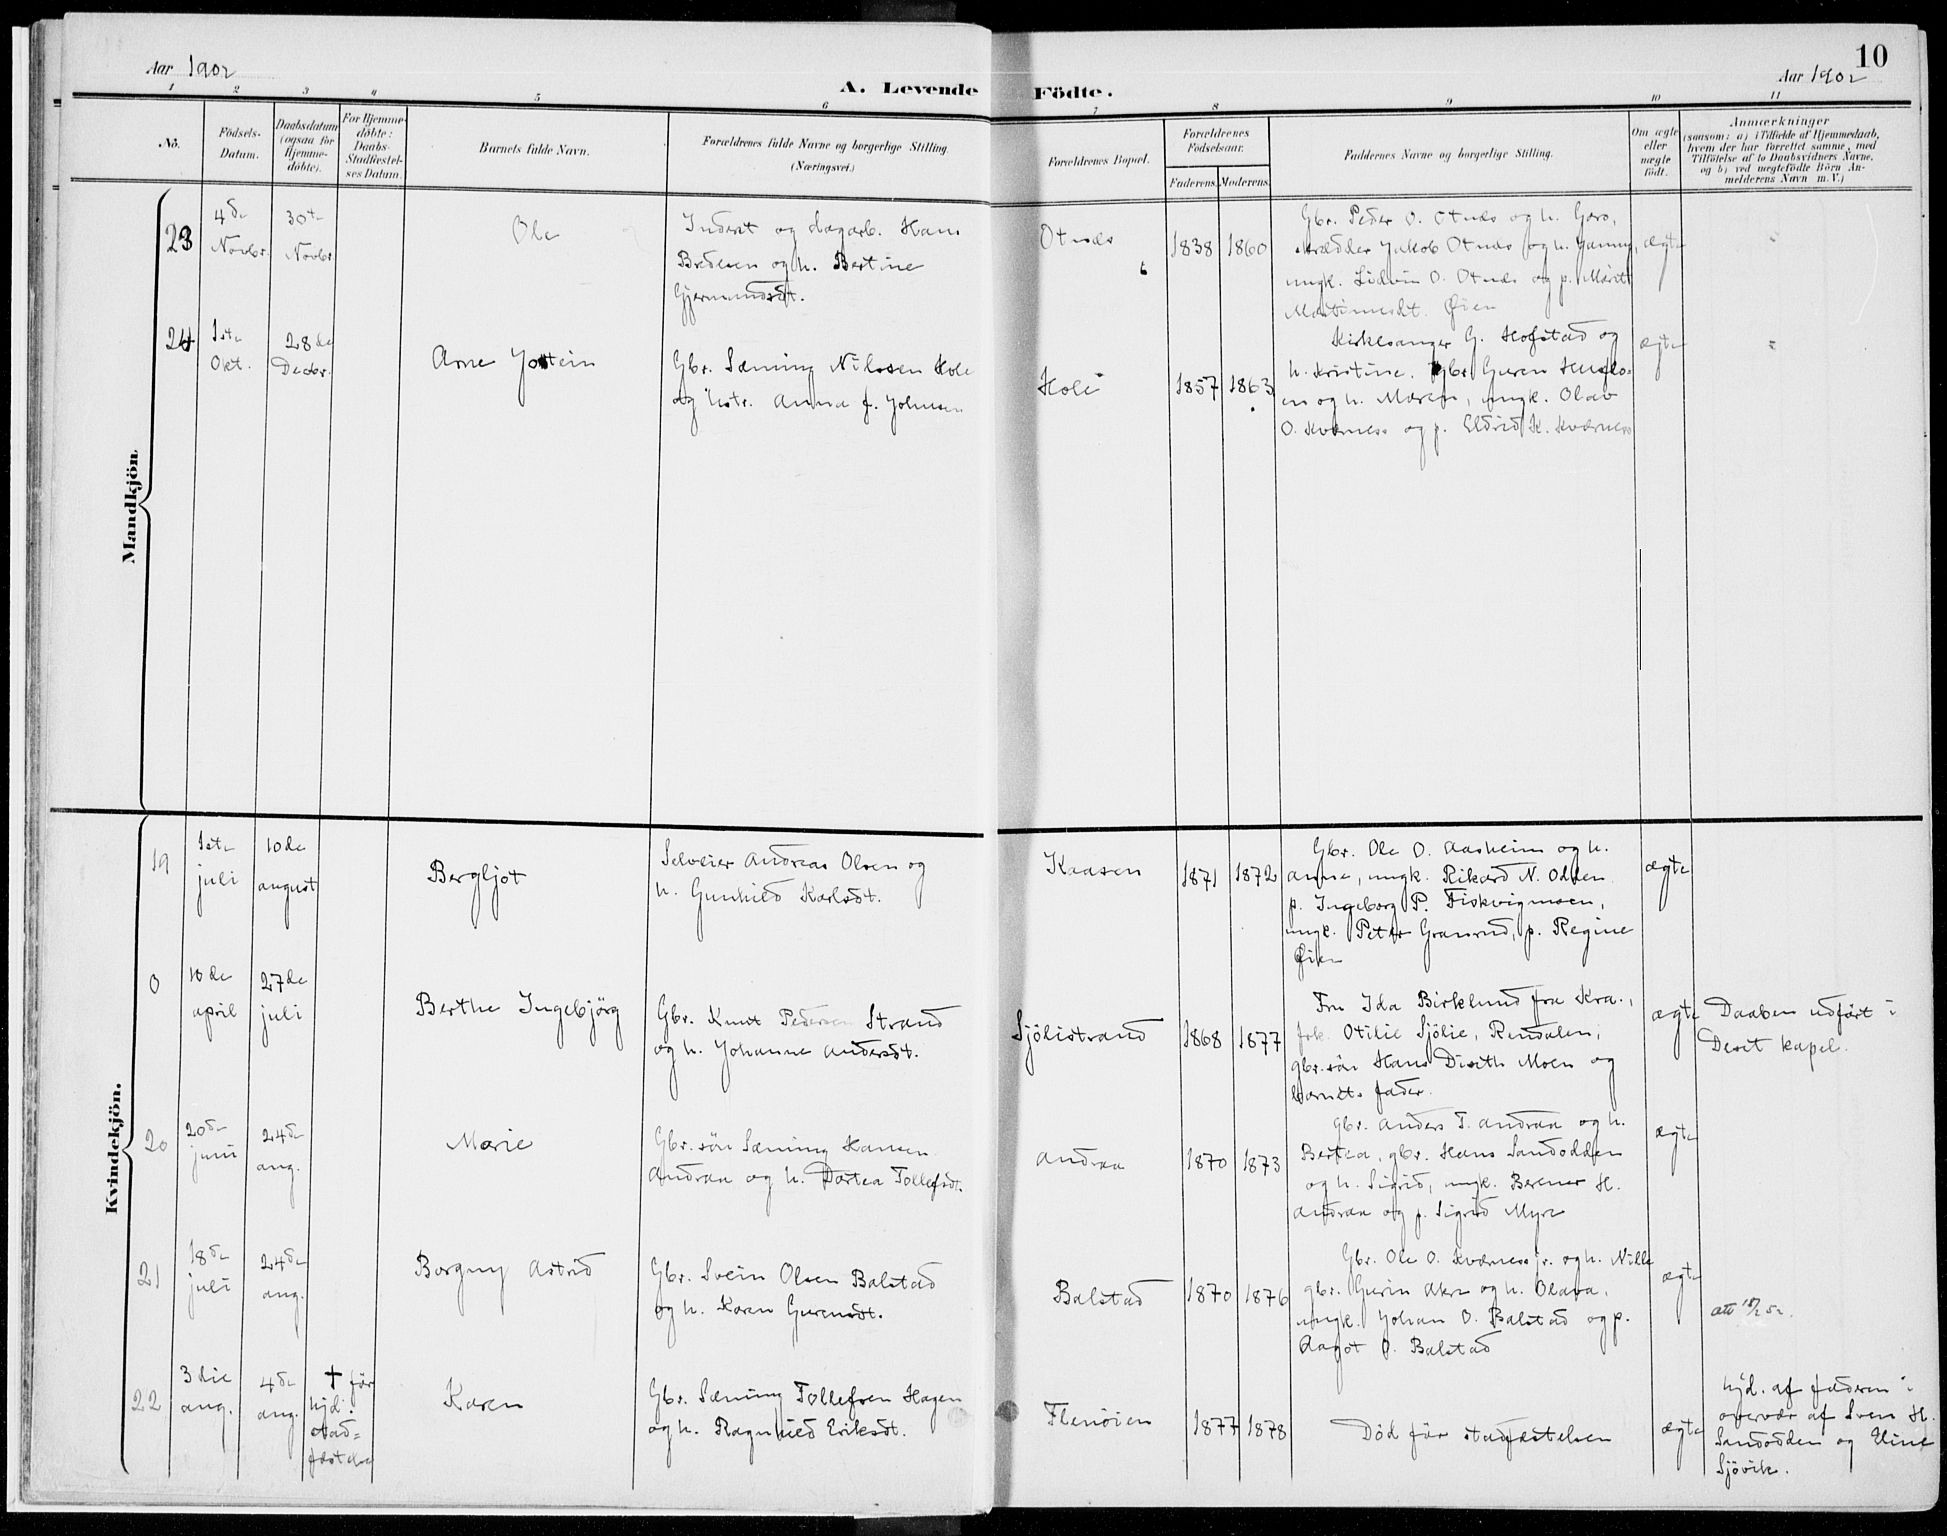 10
Aar 1902
Aar 1902
A. Levende Födte.
1 2 3 4 5 6 7 8 9 10 11
No.
Födsels-
Datum.
Daabsdatum
(ogsaa for
Hjemme-
döbte).
For Hjemme-
döbte:
Daabs-
Stadfæstel-
ses Datum.
Barnets fulde Navn.
Forældrenes fulde Navne og borgerlige Stilling.
(Næringsvei.)
Forældrenes Bopæl.
Forældrenes
Födselsaar.
Faderens. Moderens.
Faddernes Navne og borgerlige Stilling.
Om ægte
eller
uægte
födt.
Anmærkninger
(saasom: a) i Tilfælde af Hjemmedaab,
hvem der har forrettet samme, med
Tilföielse af to Daabsvidners Navne,
og b) ved uægtefödte Börn An-
melderens Navn m. V.)
Mandkjön
23
4de
Novbr.
30te
Novbr.
Ole
Inderst og dagarb. Hans
Bredesen og h. Bertine
Gjermundsdt.
Otnæs
1838
1860
Gbr. Peder O. Otnæs og h. Goro,
skrædder Jakob Otnæs og h. Janny,
ungk. Ludvin O. Otnæs og p. Marit
Martinusdt. Øien
ægte
"
24
1ste
Okt.
28de
Decbr.
Arne Jostein
Gbr. Sæming Nilssen Hole
og hstr. Anna f. Johnsen
Hole
1857
1863
Kirkesanger G. Hofstad og
h. Kristine, gbr. Guren Huslo-
en og h. Maren, ungk. Olav
O. Kværness og p. Eldrid K. Kværness
ægte
"
Kvindekjön.
19
1ste
juli
10de
august
Bergljot
Selveier Andreas Olsen og
h. Gunhild Karlsdt.
Kaasen
1871
1872
Gbr. Ole O. Aasheim og h.
Anna, ungk. Rikard N. Odden
p. Ingeborg P. Fiskvigmoen,
ungk. Peter Granrud, p. Regine
Øien
ægte
0
10de
april
27de
juli
Berthe Ingebjörg
Gbr. Knut Pedersen Strand
og h. Johanne Andersdt.
Sjölistrand
1868
1877
Fru Ida Birklund fra Kra.,
frk. Otilie Sjölie, Rendalen,
gbr.sön Hans Diseth Moen og
barnets fader.
ægte
Daaben udfört i
Deset kapel.
20
20de
juni
24de
aug.
Marie
Gbr.sön Sæming Hansen
Andraa og h. Dortea Tollefsdt.
Andraa
1870
1873
Gbr. Anders T. Andraa og h.
Bertea, gbr. Hans Sandodden
og h. Sigrid, ungk. Berner H.
Andraa og p. Sigrid Myre
ægte
21
18de
juli
24de
aug.
Borgny Astrid
Gbr. Svein Olsen Balstad
og h. Karen Gurensdt.
Balstad
1870
1876
Gbr. Ole O. Kværness jr. og h. Nille
gbr. Gurin Akre og h. Olava,
ungk. Johan O. Balstad og p.
Aagot O. Balstad
ægte
22
3die
aug.
4de
aug.
† för
hjd.
stad=
fæstelse
Karen
Gbr. Sæming Tollefsen Hagen
og h. Ragnhild Eriksdt.
Flenöien
1877
1878
Död för stadfæstelsen
ægte
hjd. af faderen i
overvær af Sven H.
Sandodden og Eline
Sjövik.